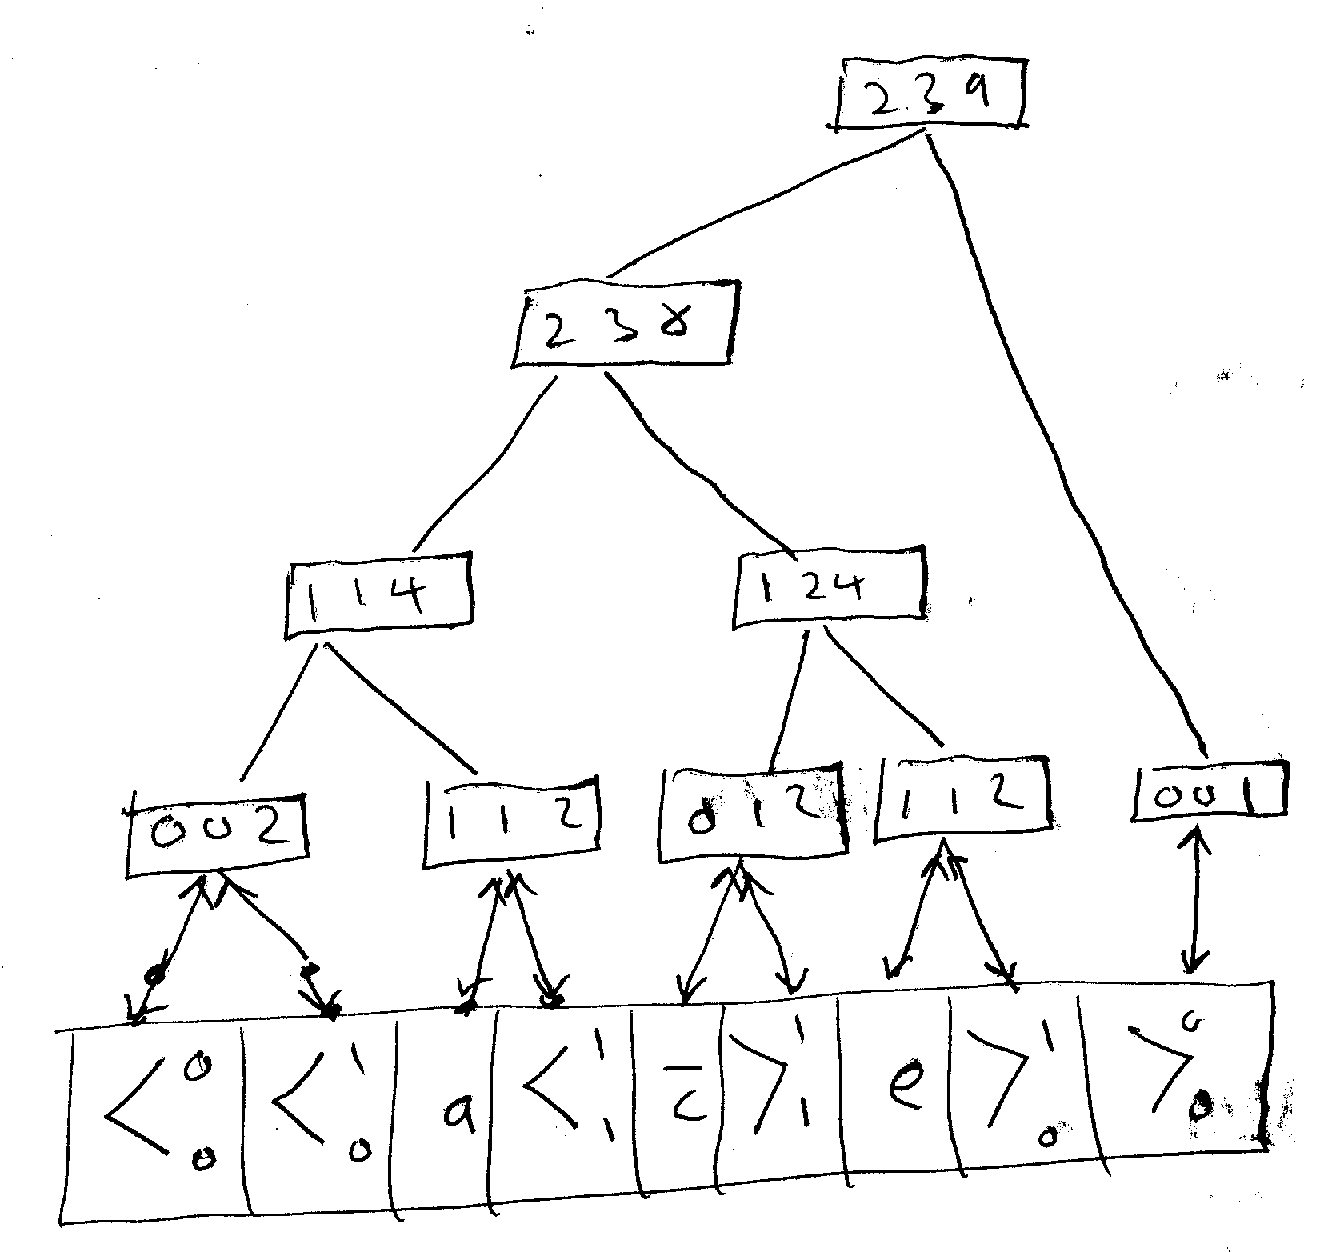 2 3 9
2 3 8
1 1 4 1 2 4
0 0 2 1 1 2 0 1 2 1 1 2 0 0 1
<⁰₀ <¹₀ a <¹₁ c̅ >¹₁ e >¹₀ >⁰₀